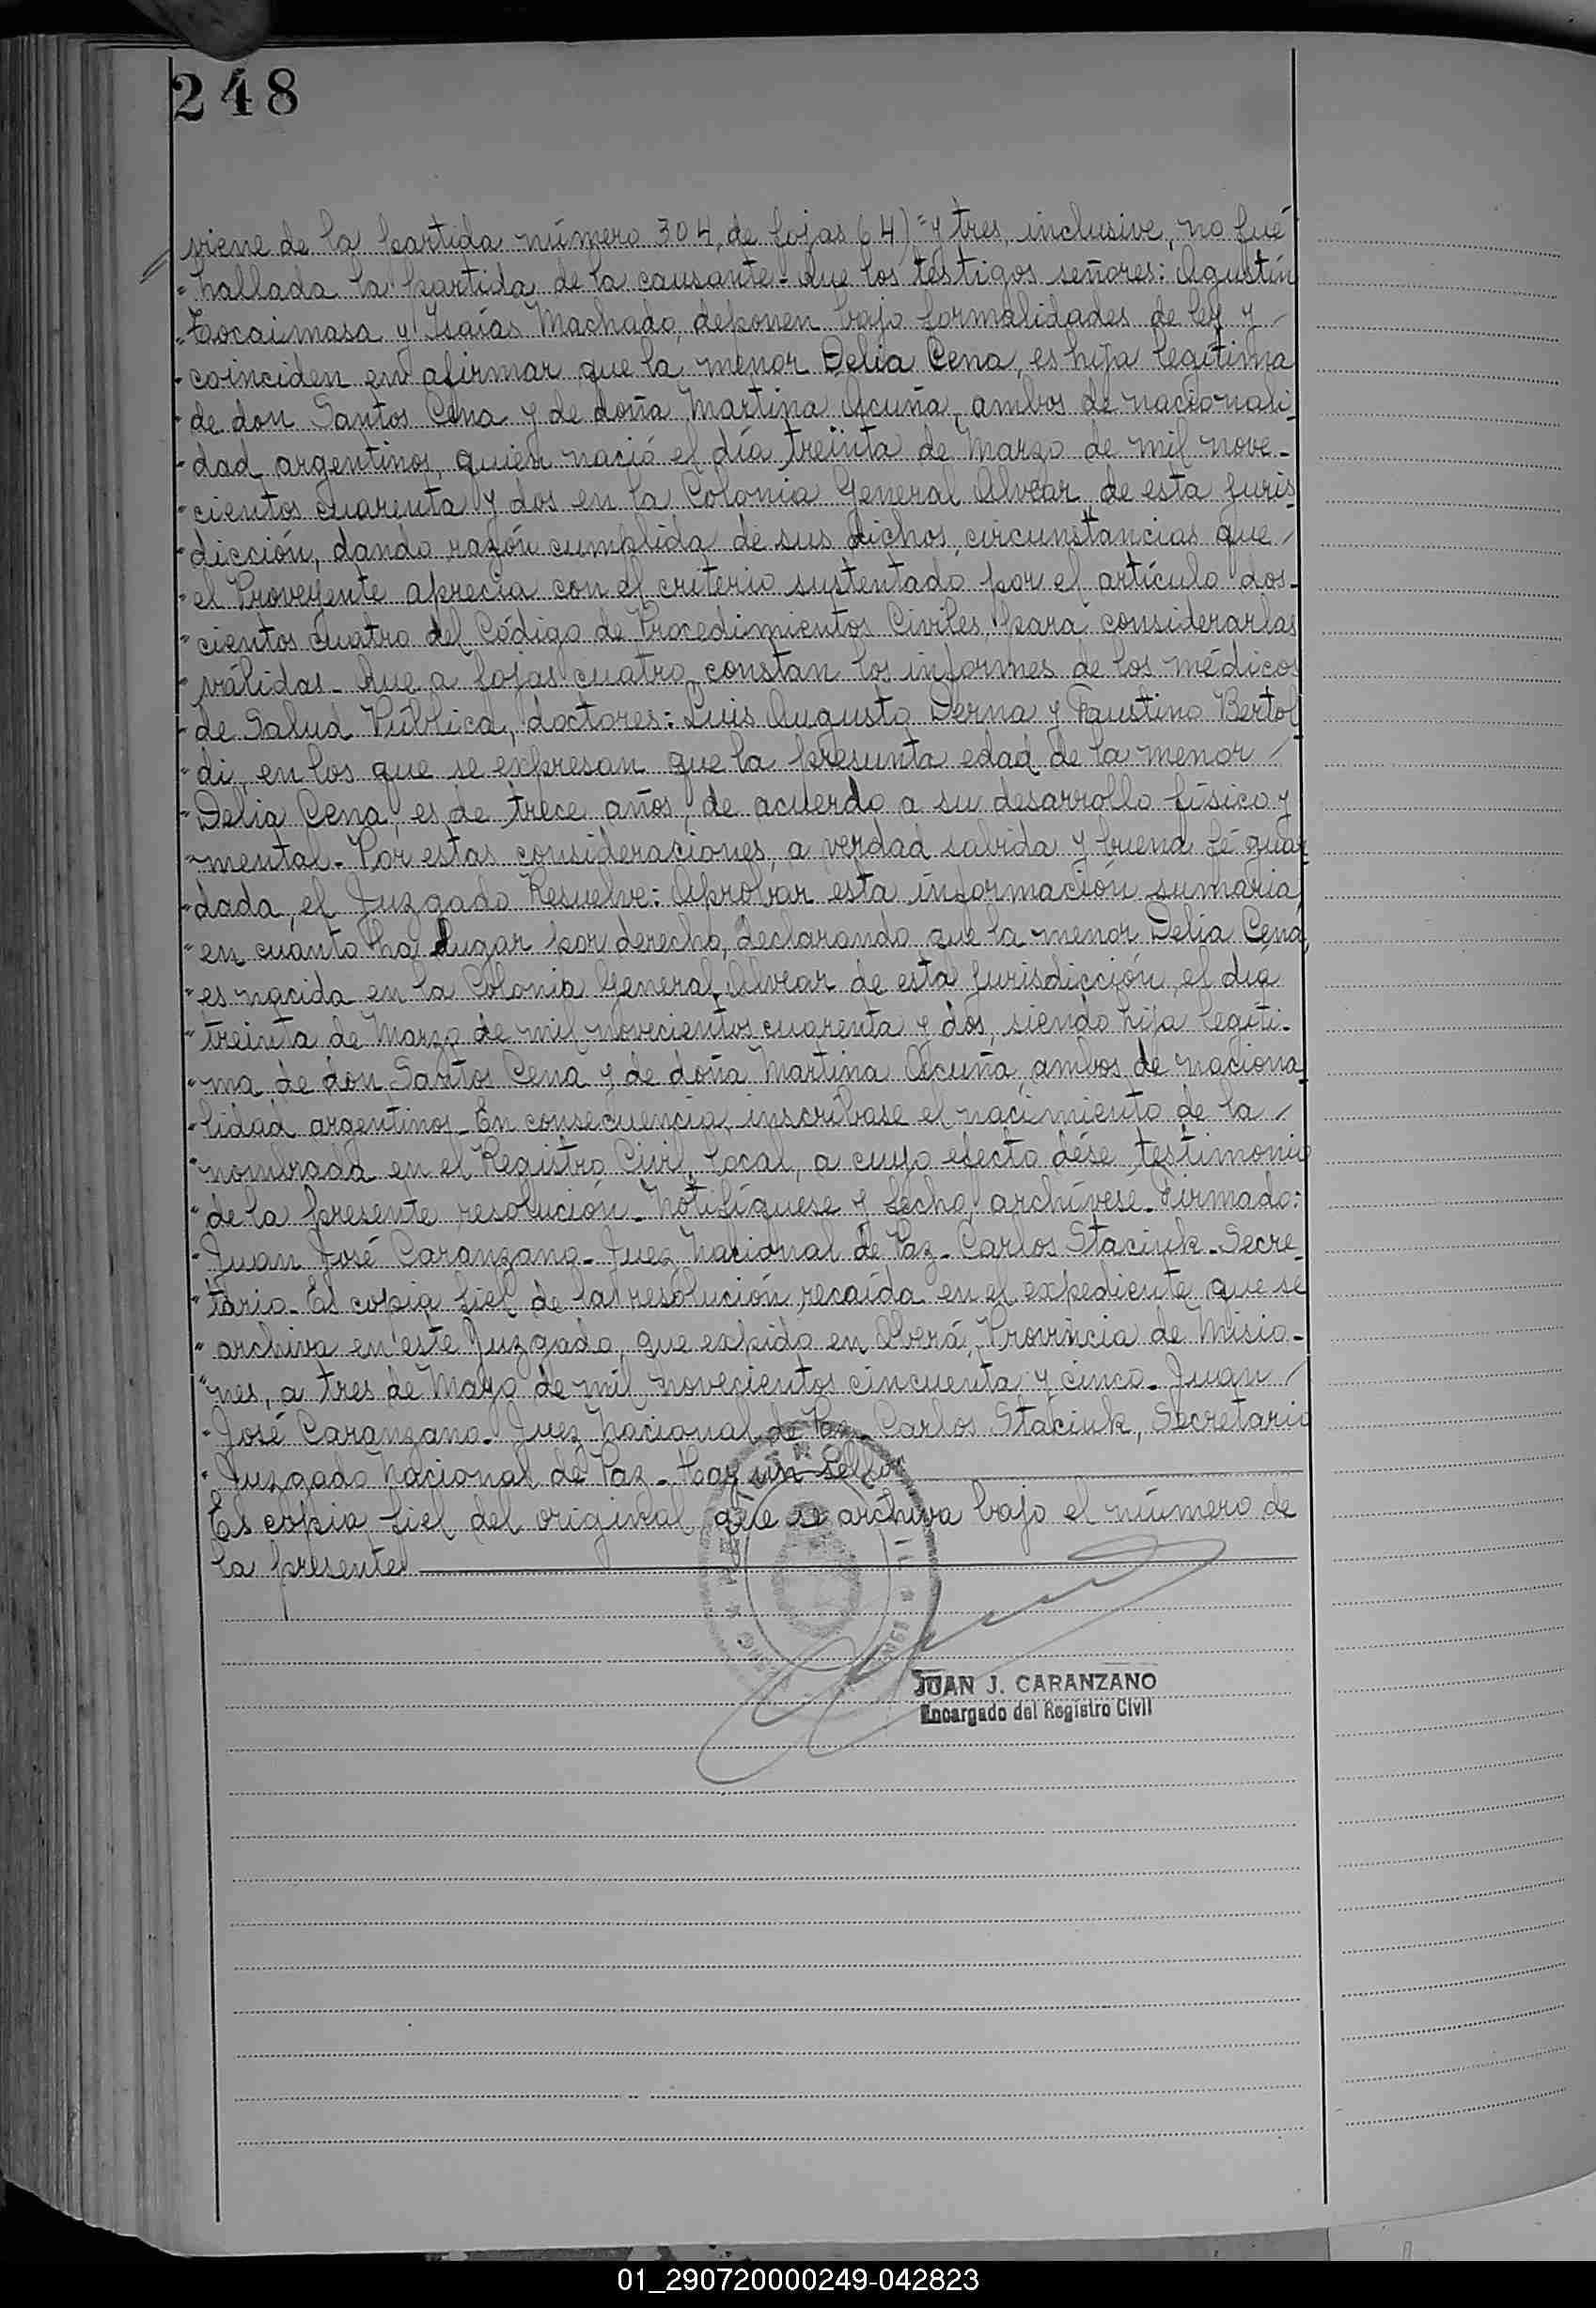 248
viene de la partida número 304, de fojas 64) "y tres, inclusive, no fué
" hallada la partida de la causante. Que los testigos señores: Agustín
" Tocaimasa y Isaías Machado, deponen bajo formalidades de ley y
" coinciden en afirmar que la menor Delia Cena, es hija legítima
" de don Santos Cena y de doña Martina Acuña, ambos de nacionali-
" dad argentinos, quien nació el día treinta de Marzo de mil nove-
" cientos cuarenta y dos en la Colonia General Alvear de esta juris-
" dicción, dando razón cumplida de sus dichos, circunstancias que
" el Proveyente aprecia con el criterio sustentado por el artículo dos-
" cientos cuatro del Código de Procedimientos Civiles, para considerarlas
" válidas. Que a fojas cuatro constan los informes de los médicos
" de Salud Pública, doctores: Luis Augusto Derna y Faustino Bertol
" di, en los que se expresan que la presunta edad de la menor
" Delia Cena, es de trece años, de acuerdo a su desarrollo físico y
" mental. Por estas consideraciones, a verdad sabida y buena fé guar
" dada, el Juzgado Resuelve: Aprobar esta información sumaria,
" en cuanto ha lugar por derecho, declarando que la menor Delia Cena,
" es nacida en la Colonia General Alvear de esta jurisdicción, el día
" treinta de Marzo de mil novecientos cuarenta y dos, siendo hija legíti-
" ma de don Santos Cena y de doña Martina Acuña, ambos de naciona
" lidad argentinos. En consecuencia, inscríbase el nacimiento de la
" nombrada en el Registro Civil local, a cuyo efecto dése testimonio
" de la presente resolución. Notifíquese y fecho, archívese. Firmado:
" Juan José Caranzano. Juez Nacional de Paz. Carlos Staciuk. Secre-
" tario. Es copia fiel de la resolución recaída en el expediente que se
" archiva en este Juzgado, que expido en Oberá, Provincia de Misio-
" nes, a tres de Mayo de mil novecientos cincuenta y cinco. Juan
" José Caranzano. Juez Nacional de Paz. Carlos Staciuk, Secretario
" Juzgado Nacional de Paz. Hay un sello.
Es copia fiel del original que se archiva bajo el número de
la presente
JUAN J. CARANZANO
Encargado del Registro Civil
01_290720000249-042823